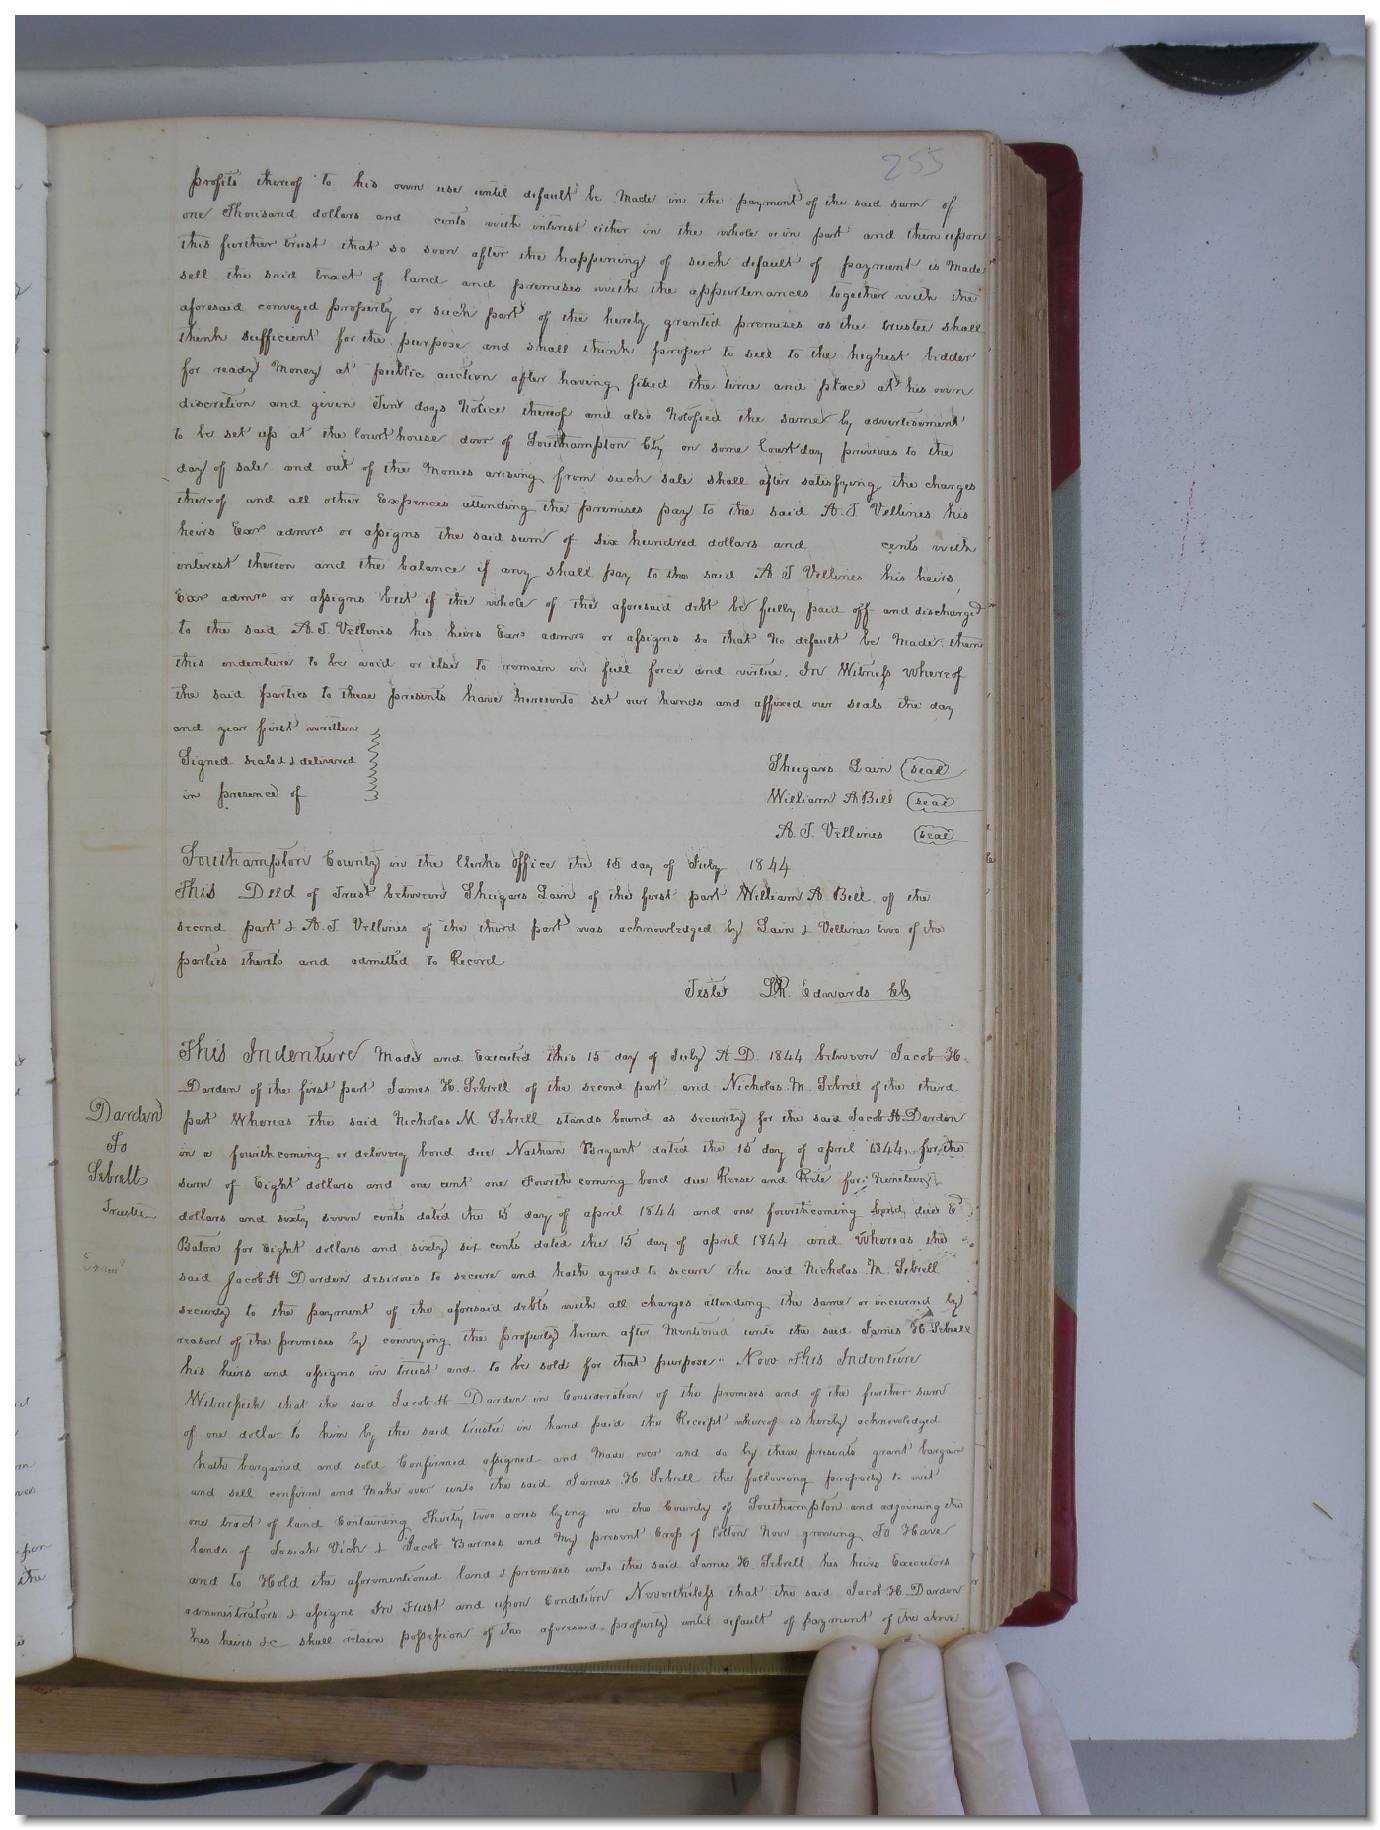 255
profits thereof to his own use until default be Made in the payment of the said sum of
one Thousand dollars and cents with interest either in the whole or in part and then upon
this further trust that so soon after the happening of such default of payment is Made
sell the said tract of land and premises with the appurtenances together with the
aforesaid conveyed property or such part of the hereby granted premises as the trustee shall
think sufficient for the purpose and shall think proper to sell to the highest bidder
for ready Money at public auction after having fixed the time and place at his own
discretion and given Ten days Notice thereof and also Notified the same by advertisement
to be set up at the Court house door of Southampton Cty on some Court day previous to the
day of sale and out of the Monies arising from such sale shall after satisfying the charges
thereof and all other Expences attending the premises pay to the said A. J. Vellines his
heirs Exor admrs or assigns the said sum of six hundred dollars and cents with
interest thereon and the balance if any shall pay to the said A J Vellines his heirs
Exor admrs or assigns but if the whole of the aforesaid debt be fully paid off and discharged
to the said A. J. Vellines his heirs Exors admrs or assigns so that No default be Made then
this indenture to be void or else to remain in full force and virtue. In Witness whereof
the said parties to these presents have hereunto set our hands and affixed our seals the day
and year first written
Signed sealed & delivered
in presence of
Shugars Lain (seal)
William A Bell (seal)
A. J. Vellines (seal)
Southampton County in the Clerks office the 15 day of July 1844
This Deed of Trust between Shugars Lain of the first part William A Bell of the
second part & A. J. Vellines of the third part was acknowledged by Lain & Vellines two of the
parties thereto and admitted to Record
Teste LR. Edwards Clk
This Indenture Made and Executed this 15 day of July A D. 1844 between Jacob H.
Darden of the first part James H. Sebrell of the second part and Nicholas. M. Sebrell of the third
part Whereas the said Nicholas M Sebrell stands bound as security for the said Jacob H. Darden
in a fourthcoming or delivery bond due Nathan Bryant dated the 15 day of april 1844 for the
sum of Eight dollars and one cent one Fourth coming bond due Reese and for Nineteen
dollars and sixty seven cents dated the 15 day of april 1844 and one fourthcoming bond due E
Baton for Eight dollars and sixty six cents dated the 15 day of april 1844 and Whereas the
said Jacob H Darden desirous to secure and hath agreed to secure the said Nicholas. M. Sebrell
security to the payment of the aforesaid debts with all charges attending the same or incurred by
reason of the premises by conveying the property herein after Mentioned unto the said James H. Sebrell
his heirs and assigns in trust and to be sold for that purpose " Now This Indenture
Witnesseth that the said Jacob H Darden in Consideration of the premises and of the further sum
of one dollar to him by the said trustee in hand paid the Receipt whereof is hereby acknowledged
hath bargained and sold Confirmed assigned and Made over and do by these presents grant bargain
and sell confirm and Make over unto the said James H. Sebrell the following property to wit
one tract of land Containing Thirty two acres lying in the County of Southampton and adjoining the
lands of Josiah Vick & Jacob Barnes and My present Crop of Cotton Now growing To Have
and to Hold the aforementioned land & premises unto the said James H Sebrell his heirs Executors
administrators & assigns In Trust and upon Condition Nevertheless that the said Jacob H. Darden
his heirs &c shall retain possession of the aforesaid property until default of payment of the above
Darden
To
Sebrell
Trustee
Exam'd